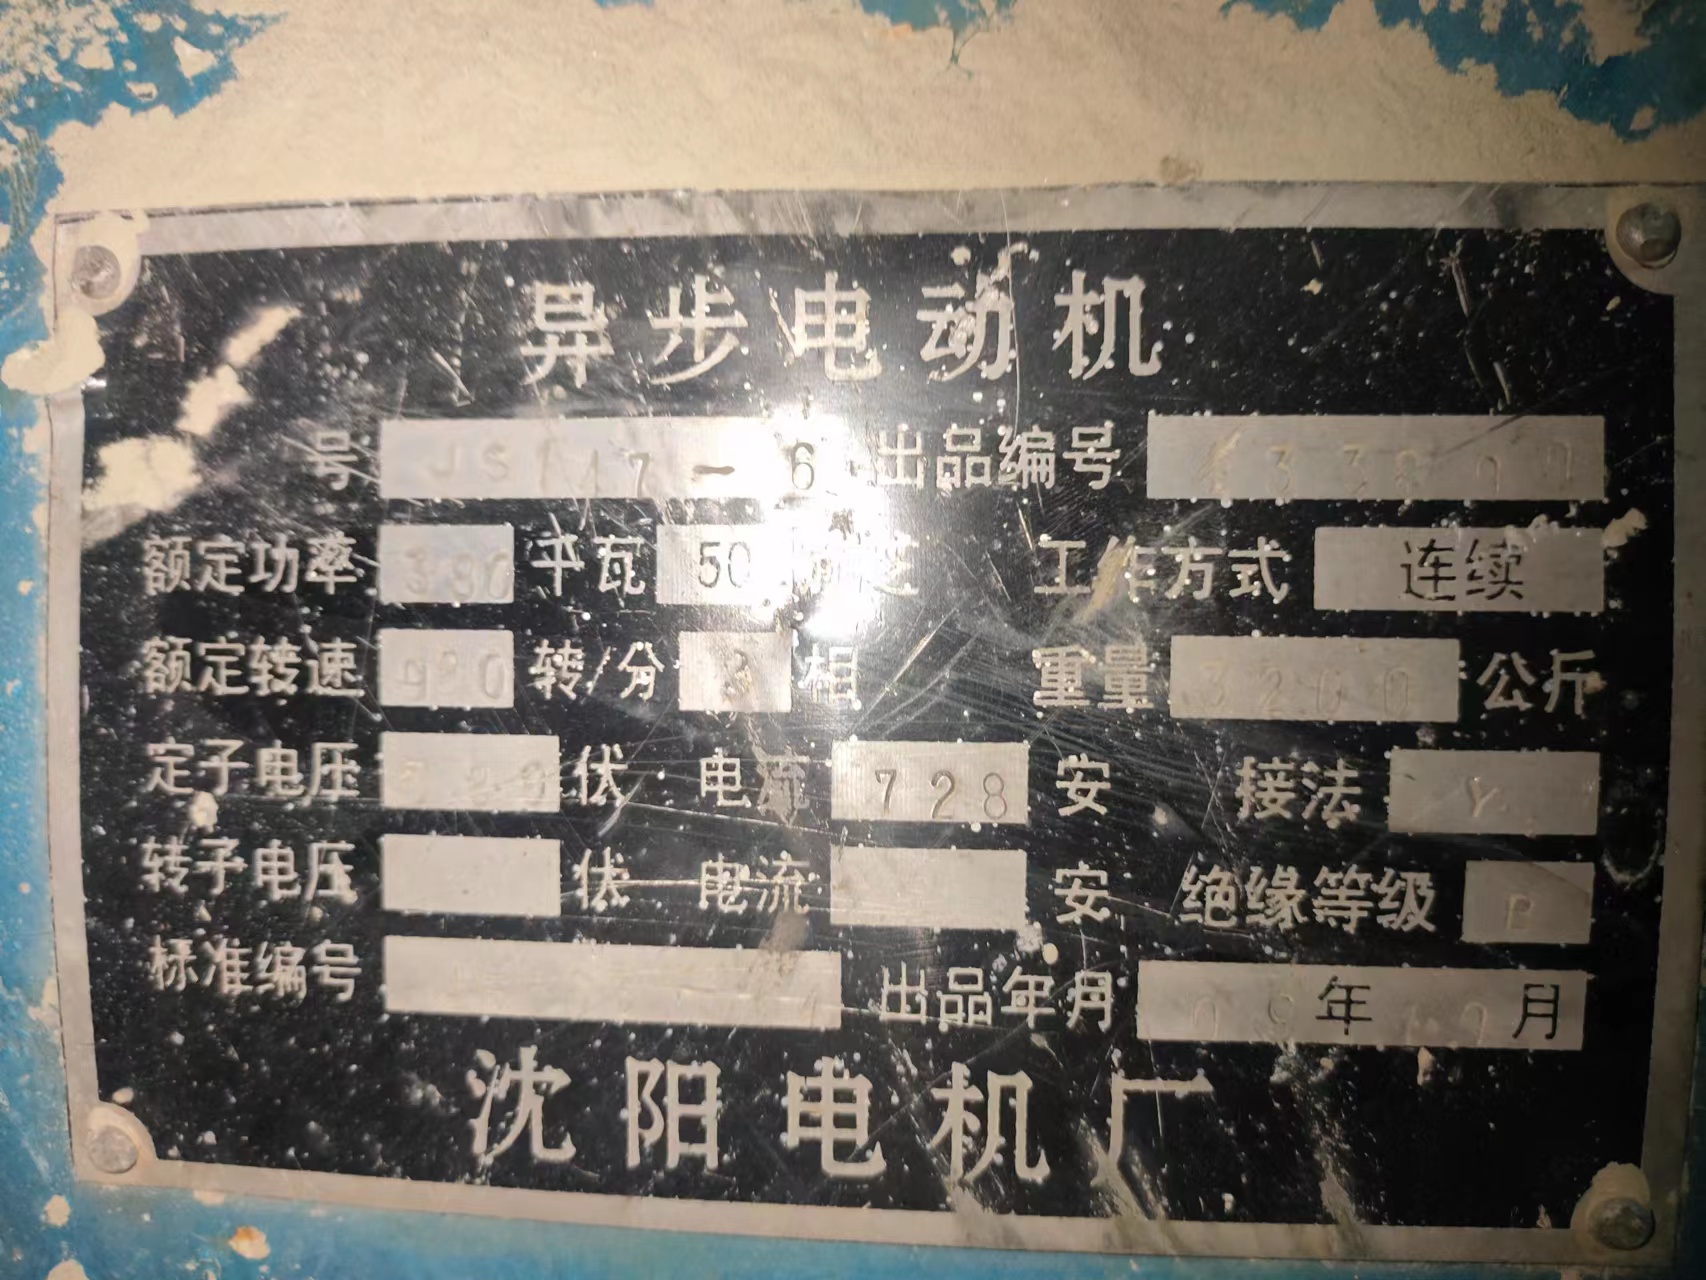 异步电动机
号 JS147-6 出品编号
额定功率 380 千瓦 50 工作方式 连续
额定转速 990 转/分 3 相 重量 3200 公斤
定子电压 伏 电流 728 安 接法 Y
转子电压 伏 电流 安 绝缘等级
标准编号 出品年月 09年 月
沈阳电机厂